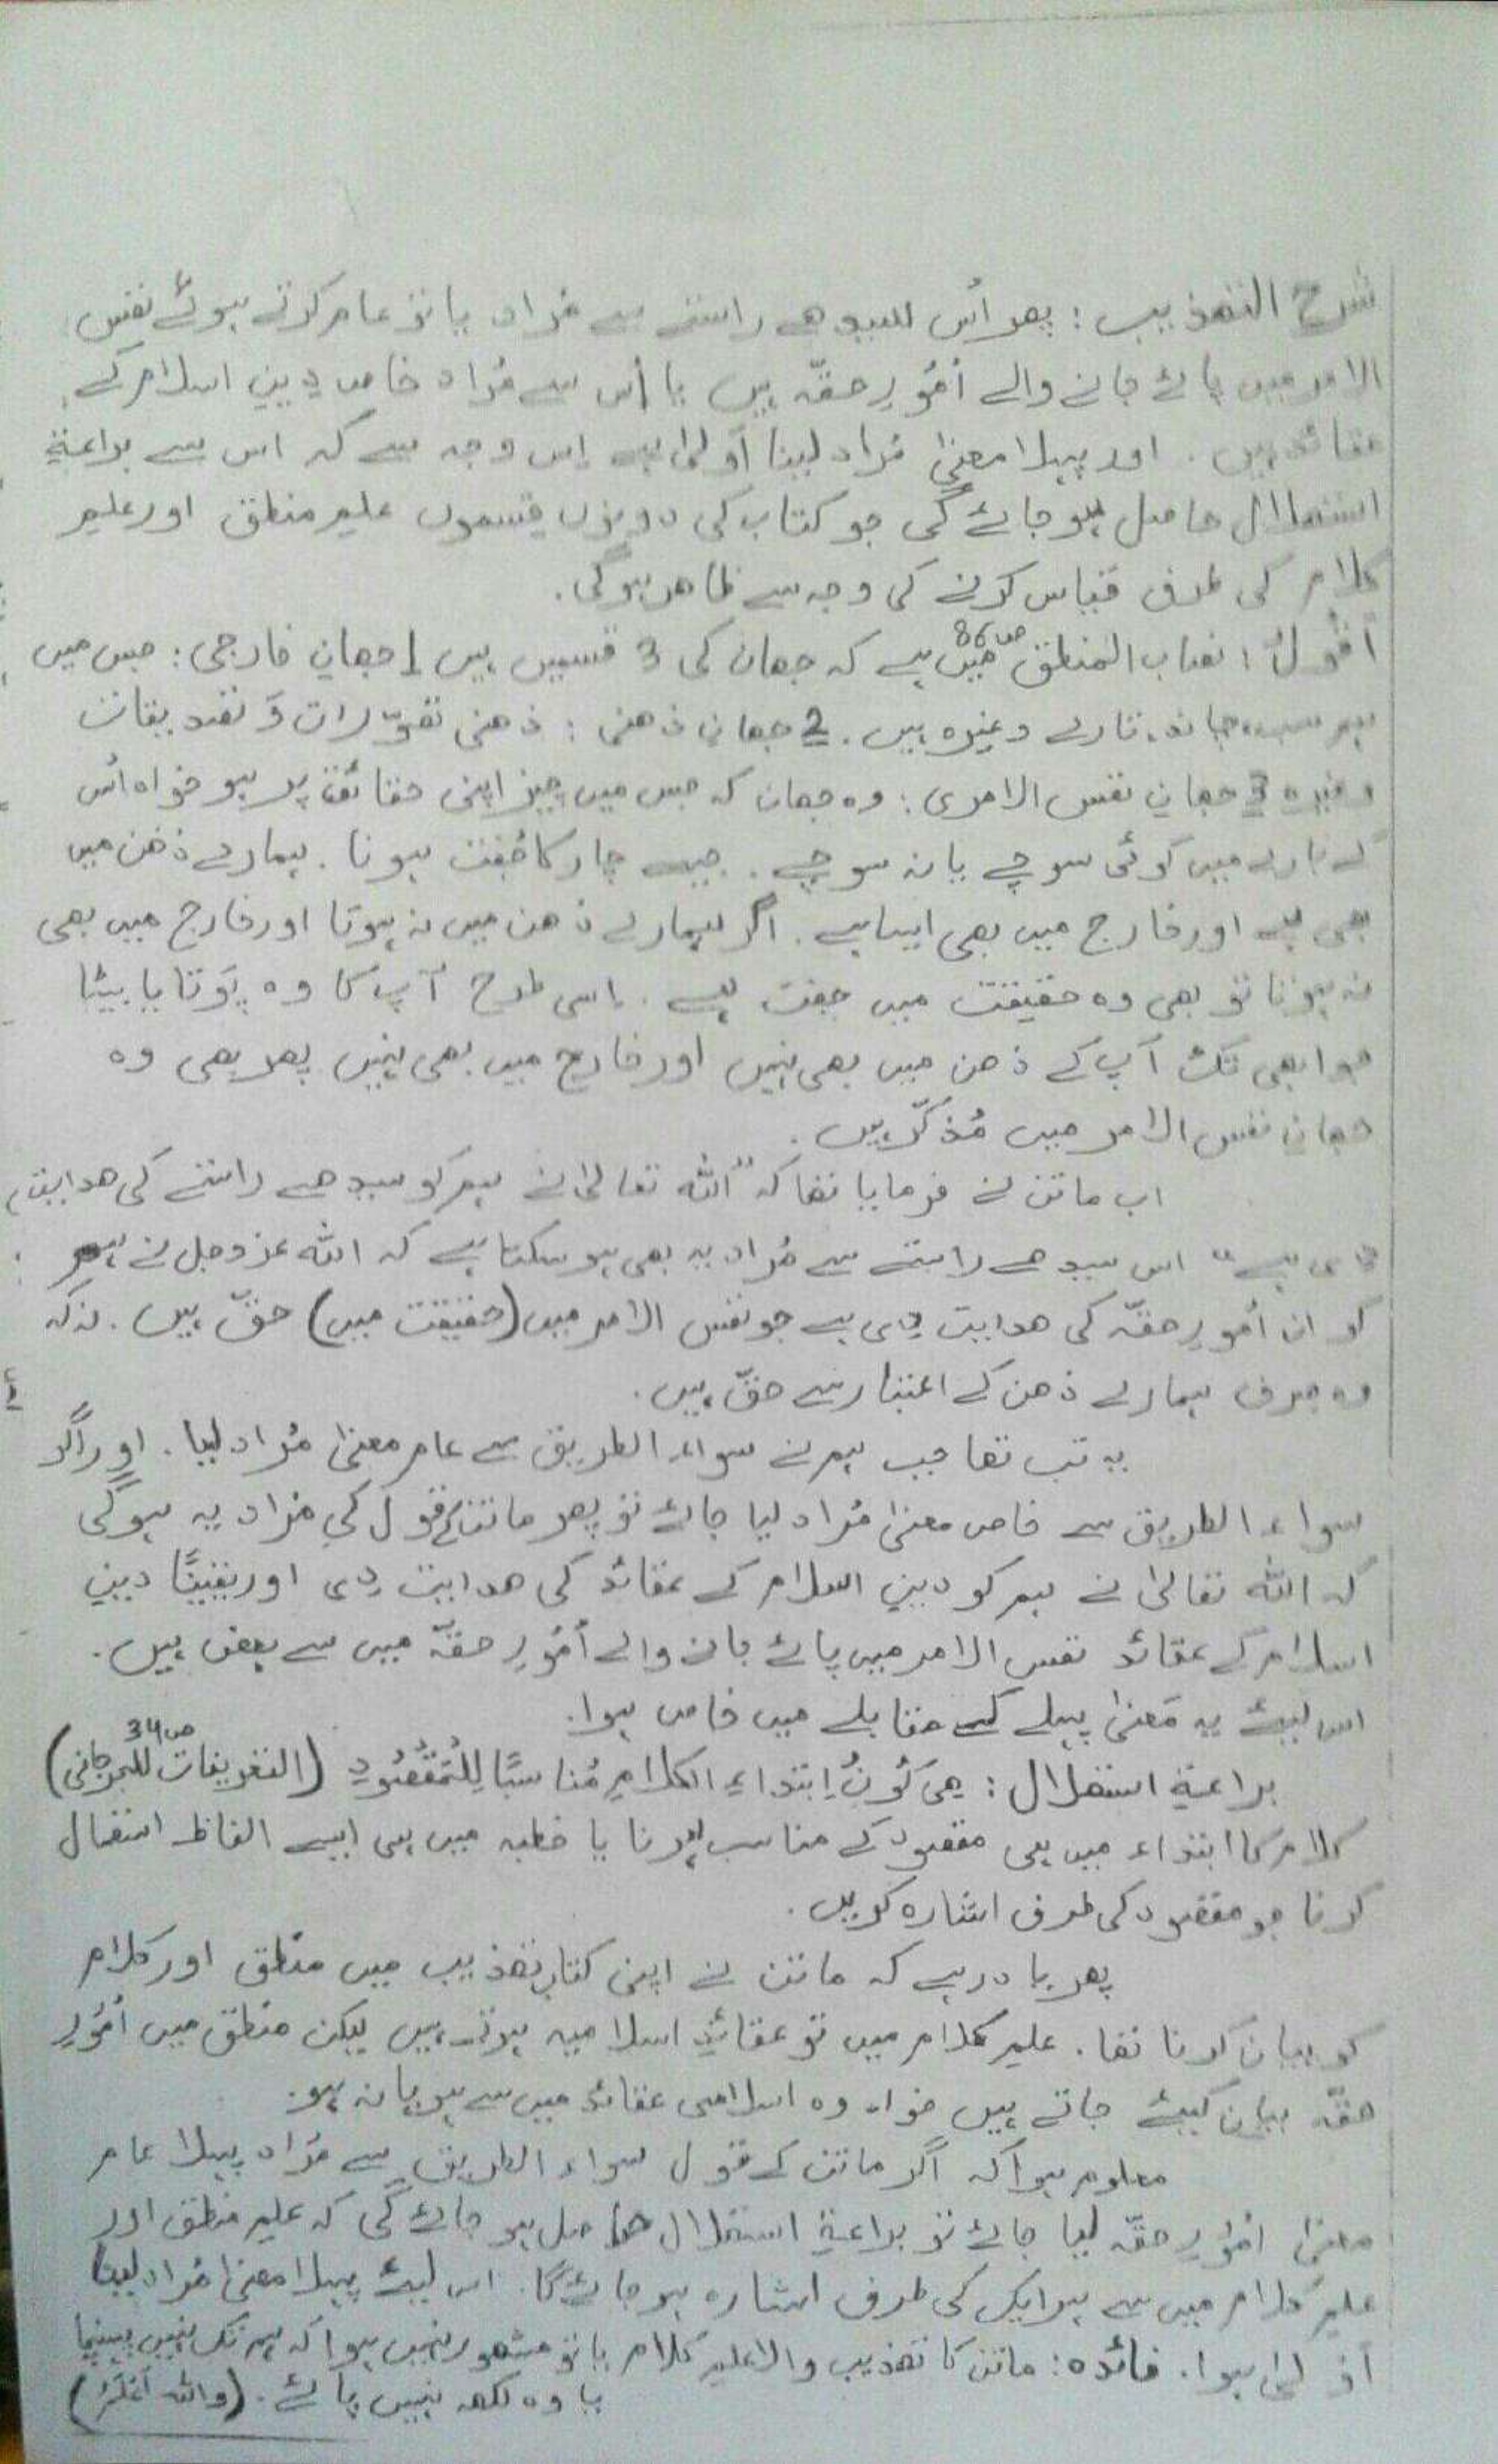 شرح التھذیب : پھر اُس سیدھے راستے سے مُراد یا تو عام کرتے ہوئے نفس
الامر میں پائے جانے والے اُمُورِ حقّہ ہیں یا اُس سے مُراد خاص دینِ اسلام کے
عقائد ہیں . اور پہلا معنیٰ مُراد لینا اَولیٰ ہے اِس وجہ سے کہ اس سے براعۃِ
استہلال حاصل ہو جائے گی جو کتاب کی دونوں قِسموں علمِ منطق اور علمِ
کلام کی طرف قیاس کرنے کی وجہ سے ظاھر ہوگی .
اَقُولُ : نصاب المنطق ص86 میں ہے کہ جھان کی 3 قسمیں ہیں 1 جھانِ خارجی : جس میں
ہم سب، چاند، تارے وغیرہ ہیں . 2 جھانِ ذھنی : ذھنی تصوّرات وَ تصدیقات
وغیرہ 3 جھانِ نفس الامری : وہ جھان کہ جس میں چیز اپنی حقائق پر ہو خواہ اُس
کے بارے میں کوئی سوچے یا نہ سوچے . جیسے چار کا جُفت ہونا . ہمارے ذھن میں
بھی ہے اور خارج میں بھی ایسا ہے . اگر ہمارے ذھن میں نہ ہوتا اور خارج میں بھی
نہ ہوتا تو بھی وہ حقیقت میں جفت ہے . اِسی طرح آپ کا وہ پَوتا یا بیٹا
جو ابھی تک آپ کے ذھن میں بھی نہیں اور خارج میں بھی نہیں پھر بھی وہ
جھانِ نفس الامر میں مُذکّر ہیں .
اب ماتن نے فرمایا تھا کہ "اللّٰہ تعالیٰ نے ہم کو سیدھے راستے کی ھدایت
دی ہے" اس سیدھے راستے سے مُراد یہ بھی ہو سکتا ہے کہ اللّٰہ عزوجل نے ہم
کو ان اُمُورِ حقّہ کی ھدایت دی ہے جو نفس الامر میں (حقیقت میں) حقّ ہیں . نہ کہ
وہ صِرف ہمارے ذھن کے اعتبار سے حقّ ہیں .
یہ تب تھا جب ہم نے سواء الطریق سے عام معنیٰ مُراد لیا . اور اگر
سواء الطریق سے خاص معنیٰ مُراد لیا جائے تو پھر ماتن کے قول کی مُراد یہ ہوگی
کہ اللّٰہ تعالیٰ نے ہم کو دینِ اسلام کے عقائد کی ھدایت دی اور یقینًا دینِ
اسلام کے عقائد نفس الامر میں پائے جانے والے اُمُورِ حقّہ میں سے بعض ہیں .
اس لیئے یہ مَعنیٰ پہلے کے مقابلے میں خاص ہوا .
براعۃِ استھلال : ھِیَ کَونُ اِبتداءِ الکلامِ مُناسبًا لِلْمَقْصُودِ (التعریفات للجرجانی ص34)
کلام کا ابتداء میں ہی مقصود کے مناسب ہونا یا خطبہ میں ہی ایسے الفاظ استعمال
کرنا جو مقصود کی طرف اشارہ کریں .
پھر یاد رہے کہ ماتن نے اپنی کتاب تھذیب میں منطق اور کلام
کو بیان کرنا تھا . علمِ کلام میں تو عقائدِ اسلامیہ ہوتے ہیں لیکن منطق میں اُمُورِ
حقّہ بیان کیئے جاتے ہیں خواہ وہ اسلامی عقائد میں سے ہو یا نہ ہو .
معلوم ہوا کہ اگر ماتن کے قول سواء الطریق سے مُراد پہلا عام
معنیٰ اُمُورِ حقّہ لیا جائے تو براعۃِ استھلال حاصل ہو جائے گی کہ علمِ منطق اور
علمِ کلام میں سے ہر ایک کی طرف اشارہ ہو جائے گا . اس لیئے پہلا معنیٰ مُراد لینا
اَولیٰ ہوا . فائدہ : ماتن کا تھذیب والا علمِ کلام یا تو مشھور نہیں ہوا کہ ہم تک نہیں پہنچا
یا وہ لکھ نہیں پائے . (واللّٰہ اَعْلَمُ)